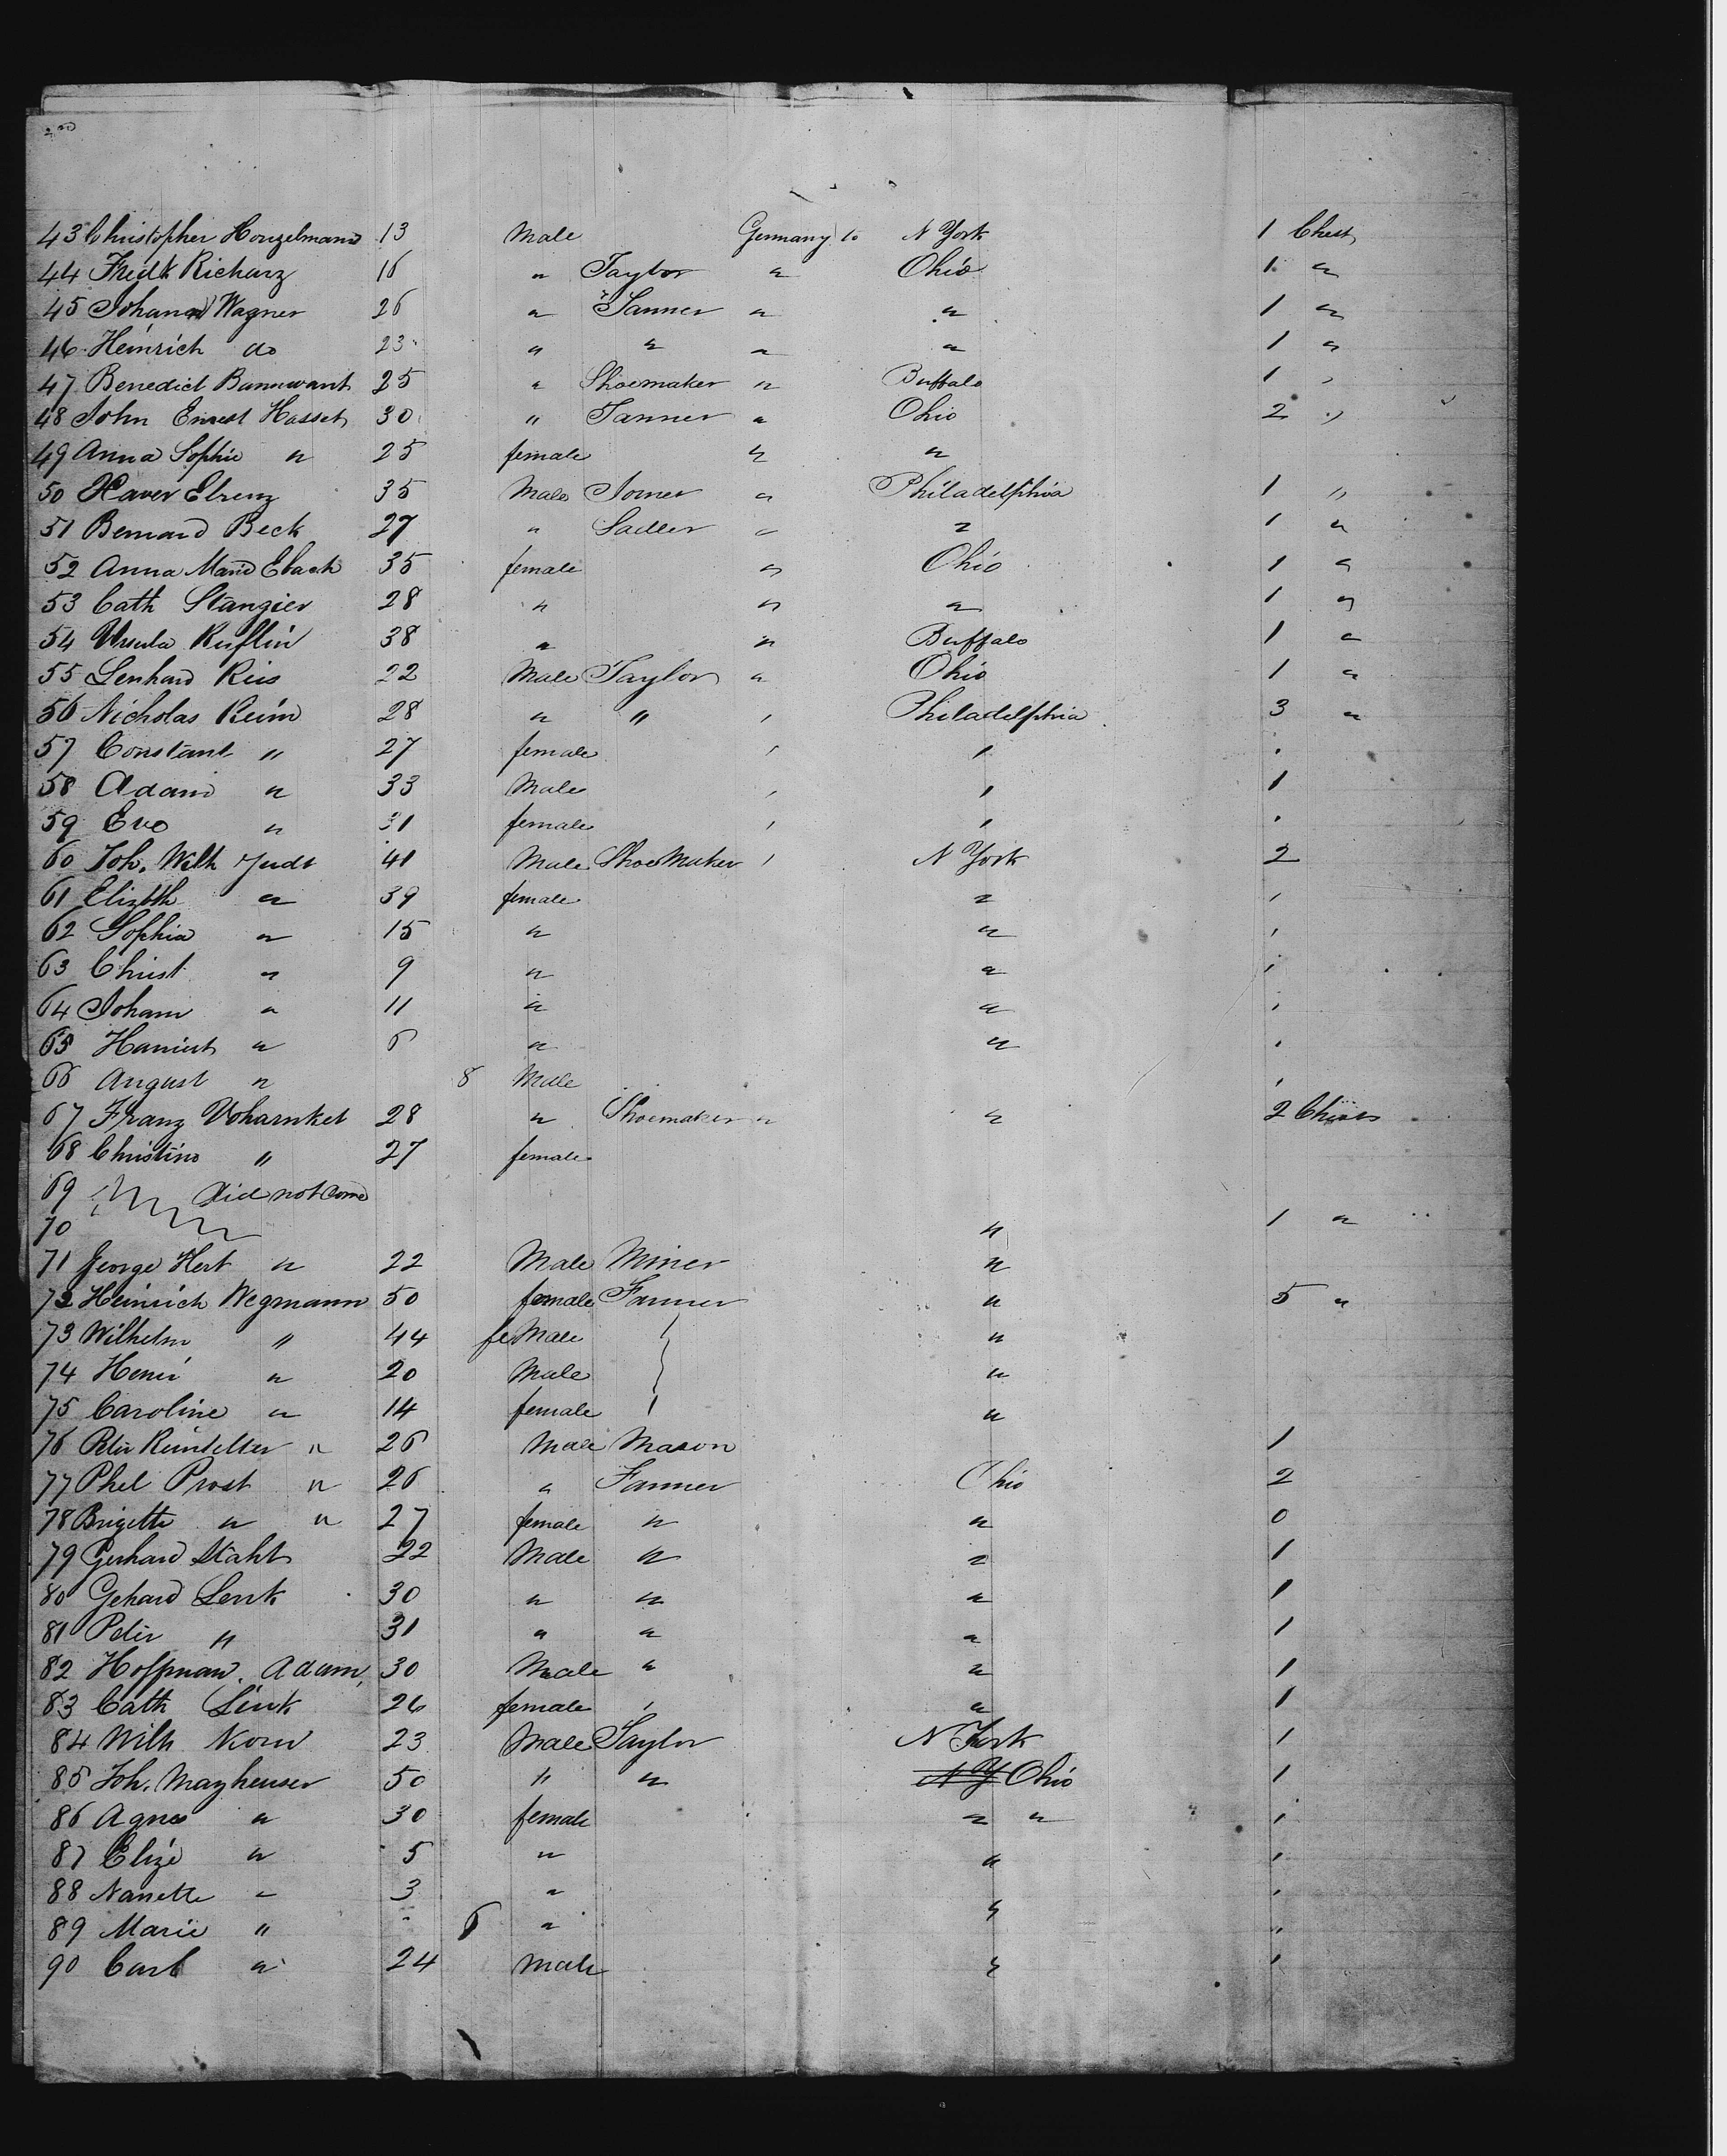 43 Christopher Honzelmann 13 Male Germany to N York 1 Chest
44 Fredk Richarz 16 " Taylor " Ohio 1 "
45 Johann Wagner 26 " Tanner " " 1 "
46 Heinrich do 23 " " " " 1 "
47 Benedict Bannwart 25 " Shoemaker " Buffalo 1 "
48 John Ernest Hasset 30 " Tanner " Ohio 2 "
49 Anna Sophie " 25 female " "
50 Xaver Elrenz 35 Male Joiner " Philadelphia 1 "
51 Bernard Beck 27 " Sadler " " 1 "
52 Anna Maria Ebach 35 female " Ohio 1 "
53 Cath Stangier 28 " " " 1 "
54 Ursula Kuflin 38 " " Buffalo 1 "
55 Lenhard Reis 22 Male Taylor " Ohio 1 "
56 Nicholas Reim 28 " " " Philadelphia 3 "
57 Constant " 27 female " "
58 Adam " 33 Male " " 1
59 Eva " 31 female " "
60 Joh. Wilh Judt 41 Male Shoe Maker " N York 2
61 Elizbth " 39 female "
62 Sophia " 15 " "
63 Christ " 9 " "
64 Johann " 11 " "
65 " 6 " "
66 August " 8 Male
67 Franz Voharnket 28 " Shoemaker " " 2 Chests
68 Christine " 27 female
69 did not come
70 " 1 "
71 George Hert " 22 Male Miner "
72 Heinrich Wegmann 50 female Farmer " 5 "
73 Wilhelm " 44 fe Male "
74 Henri " 20 Male "
75 Caroline " 14 female "
76 Peter " 26 Male Mason 1
77 Phel Prost " 26 " Farmer Ohio 2
78 Brigette " " 27 female " " 0
79 Gerhard Stahl 22 Male " " 1
80 Gehard Lenk 30 " " " 1
81 Peter " 31 " " " 1
82 Hoffman, Adam, 30 Male " " 1
83 Cath Link 26 female " 1
84 Wilh Korn 23 Male Taylor N York 1
85 Joh. Mayheuser 50 " " N Y Ohio 1
86 Agnes " 30 female " "
87 Elize " 5 " "
88 Nanette " 3 "
89 Marie " 6 " "
90 Carl " 24 Male " 1